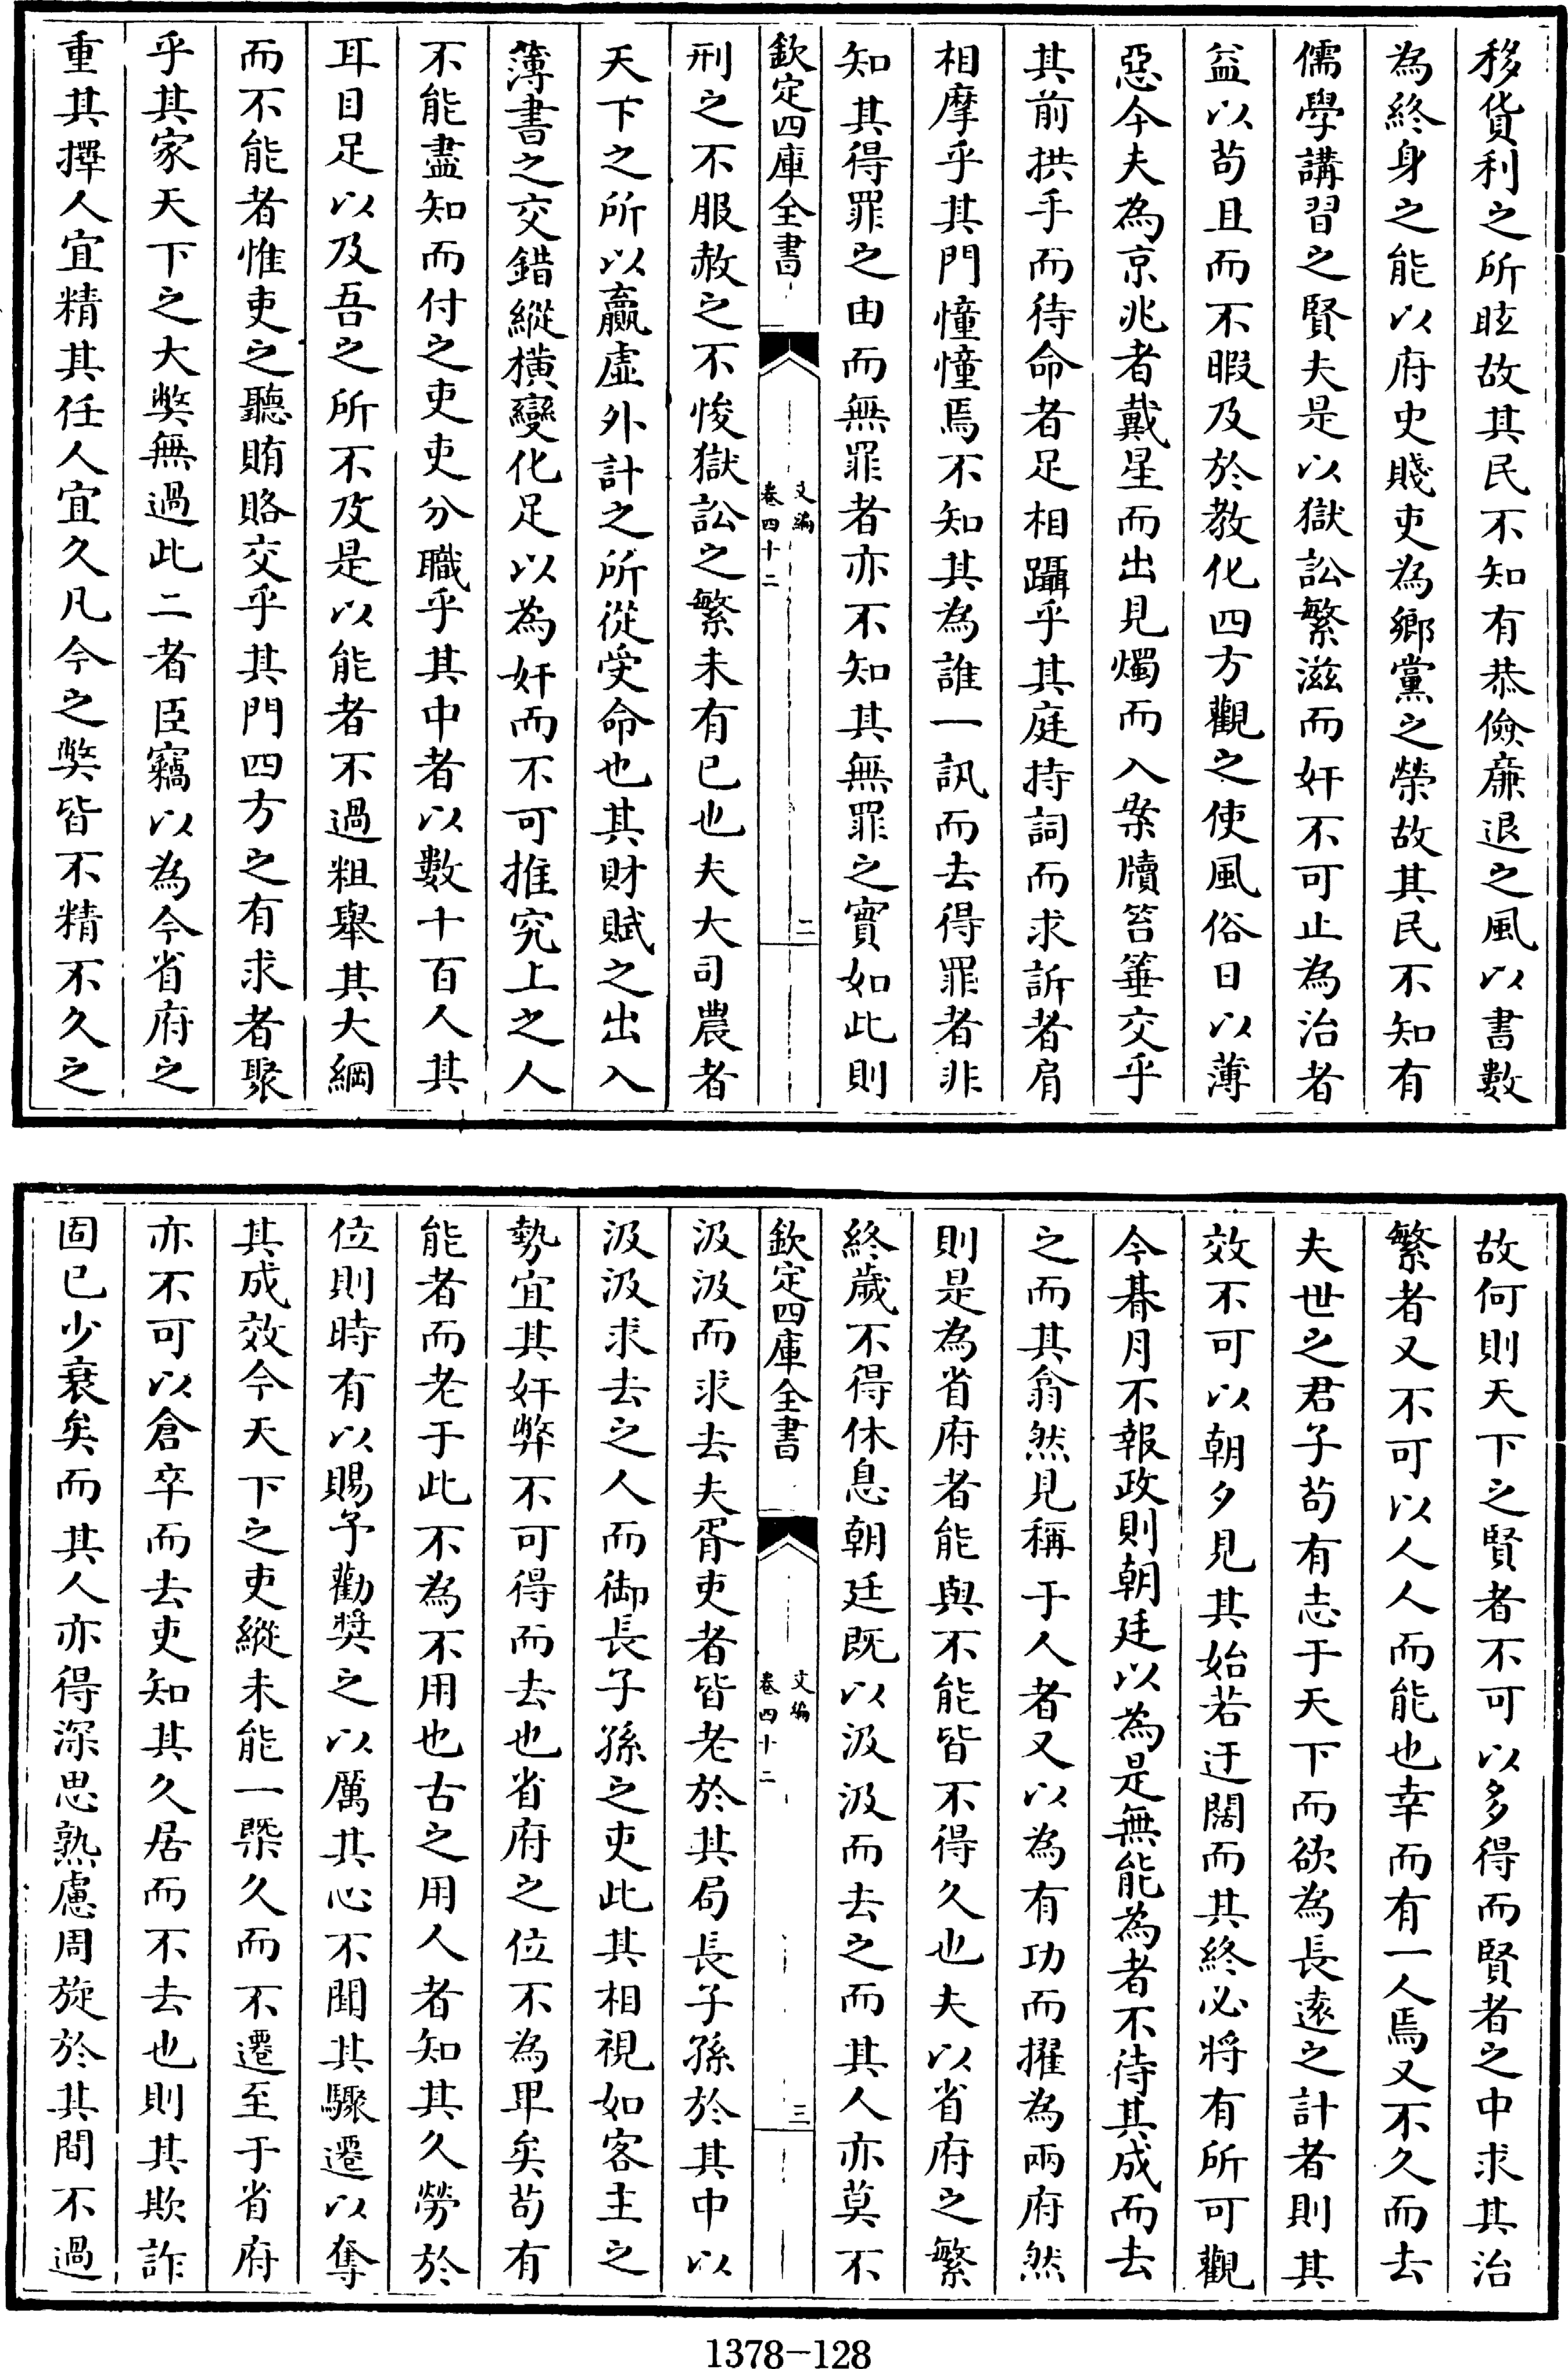 移貨利之所眩故其民不知有恭儉廉退之風以書數
為終身之能以府史賤吏為鄉黨之榮故其民不知有
儒學講習之賢夫是以獄訟繁滋而奸不可止為治者
益以茍且而不暇及於教化四方觀之使風俗日以薄
惡今夫為京兆者戴星而出見燭而入案牘笞箠交乎
其前拱手而待命者足相躡乎其庭持詞而求訴者肩
相摩乎其門憧憧焉不知其為誰一訊而去得罪者非
知其得罪之由而無罪者亦不知其無罪之實如此則
欽定四庫全書
文編
卷四十二
二
刑之不服赦之不悛獄訟之繁未有已也夫大司農者
天下之所以贏虛外計之所從受命也其財賦之出入
簿書之交錯縱橫變化足以為奸而不可推究上之人
不能盡知而付之吏吏分職乎其中者以數十百人其
耳目足以及吾之所不及是以能者不過粗舉其大綱
而不能者惟吏之聽賄賂交乎其門四方之有求者聚
乎其家天下之大獘無過此二者臣竊以為今省府之
重其擇人宜精其任人宜久凡今之獘皆不精不久之
故何則天下之賢者不可以多得而賢者之中求其治
繁者又不可以人人而能也幸而有一人焉又不久而去
夫世之君子茍有志于天下而欲為長遠之計者則其
效不可以朝夕見其始若迂闊而其終必將有所可觀
今朞月不報政則朝廷以為是無能為者不待其成而去
之而其翕然見稱于人者又以為有功而擢為兩府然
則是為省府者能與不能皆不得久也夫以省府之繁
終歲不得休息朝廷既以汲汲而去之而其人亦莫不
欽定四庫全書
文編
卷四十二
三
汲汲而求去夫胥吏者皆老於其局長子孫於其中以
汲汲求去之人而御長子孫之吏此其相視如客主之
勢宜其奸弊不可得而去也省府之位不為卑矣茍有
能者而老于此不為不用也古之用人者知其久勞於
位則時有以賜予勸奬之以厲其心不聞其驟遷以奪
其成效今天下之吏縱未能一槩久而不遷至于省府
亦不可以倉卒而去吏知其久居而不去也則其欺詐
固已少衰矣而其人亦得深思熟慮周旋於其間不過
1378-128